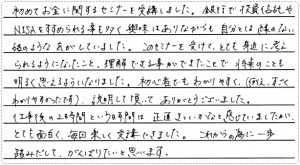 初めてお金に関するセミナーを受講しました。銀行で投資信託や
NISAをすすめられる事も多く興味はありながらも自分とは係のない
話のような気がしていました。このセミナーを受けて、とても身近に考え
られるようになったこと、理解できる事ができたことで将来のことも
明るく思えるようになりました。初心者でもわかりやすく、(例え、すごく
わかりやすかったです)、説明して頂いてありがとうございました。
仕事後の2時間という時間は正直きついかなと感じていましたが、
とても面白く、毎回楽しく受講できました。これからの為に一歩
踏みだして、がんばりたいと思います。